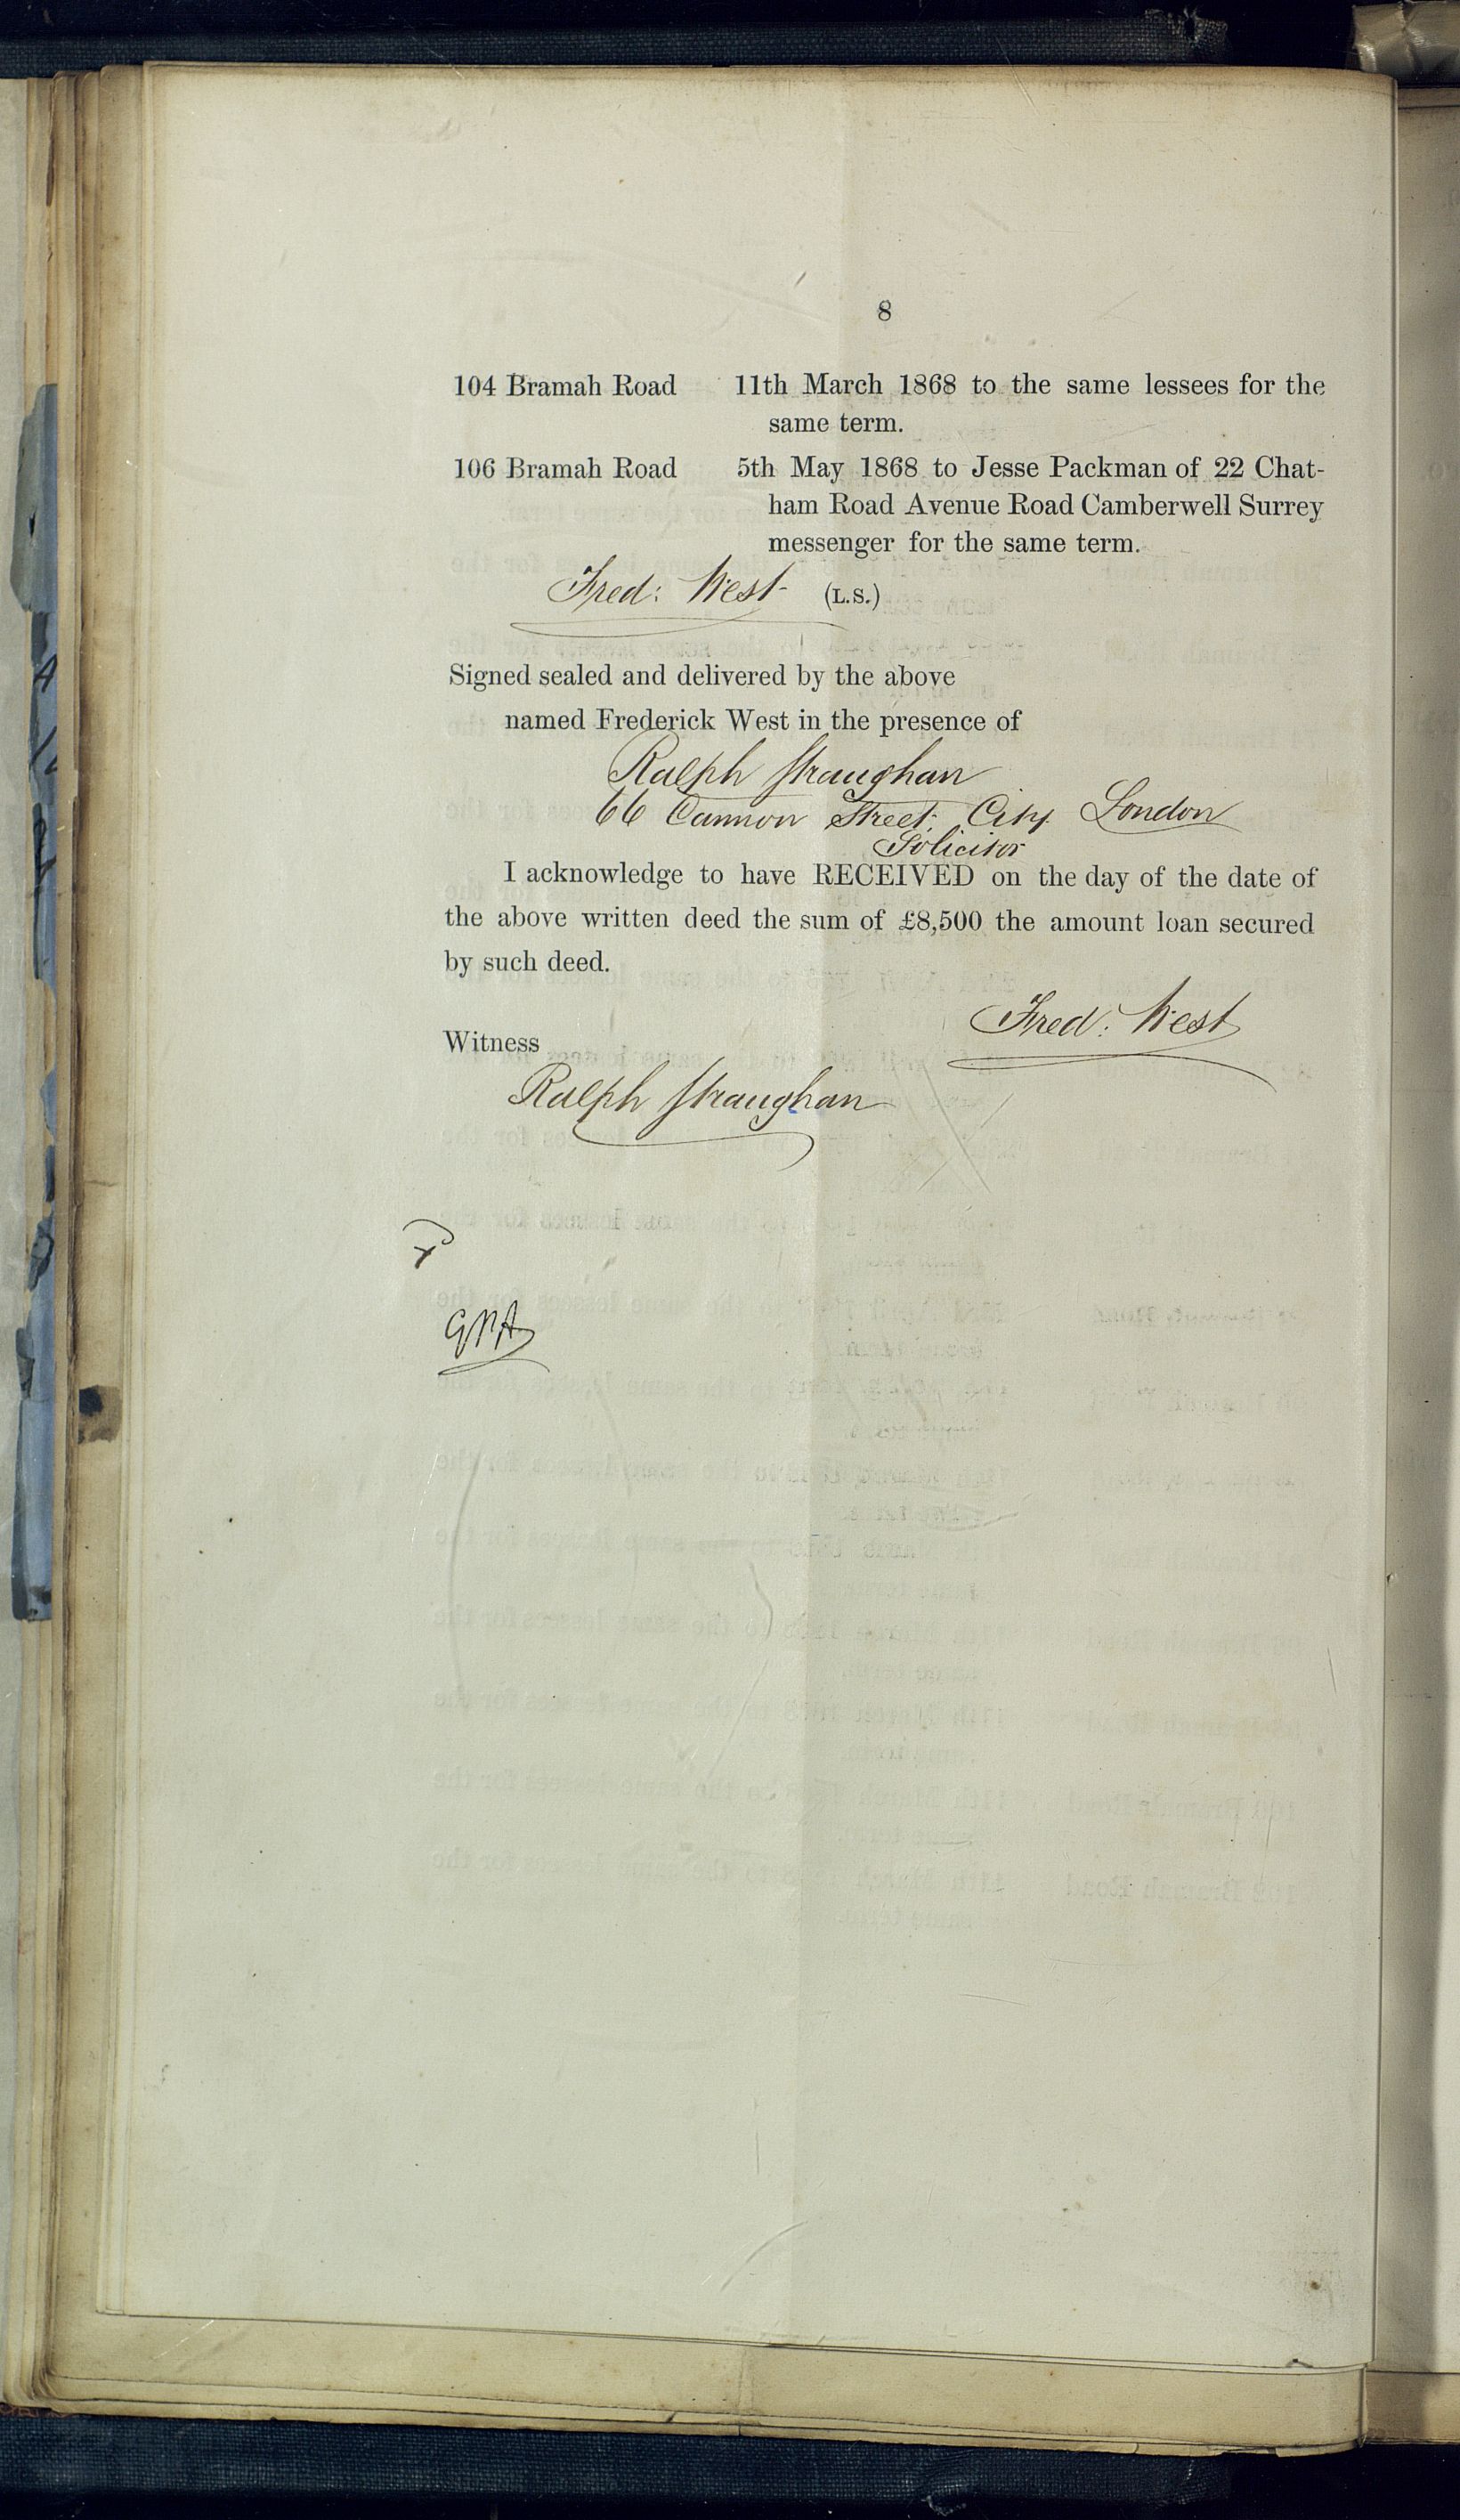 8
104 Bramah Road 11th March 1868 to the same lessees for the
same term.
106 Bramah Road 5th May 1868 to Jesse Packman of 22 Chat-
ham Road Avenue Road Camberwell Surrey
messenger for the same term.
Fred: West (L.S.)
Signed sealed and delivered by the above
named Frederick West in the presence of
Ralph Straughan
66 Cannon Street, City London
Solicitor
I acknowledge to have RECEIVED on the day of the date of
the above written deed the sum of £8,500 the amount loan secured
by such deed.
Fred: West
Witness
Ralph Straughan